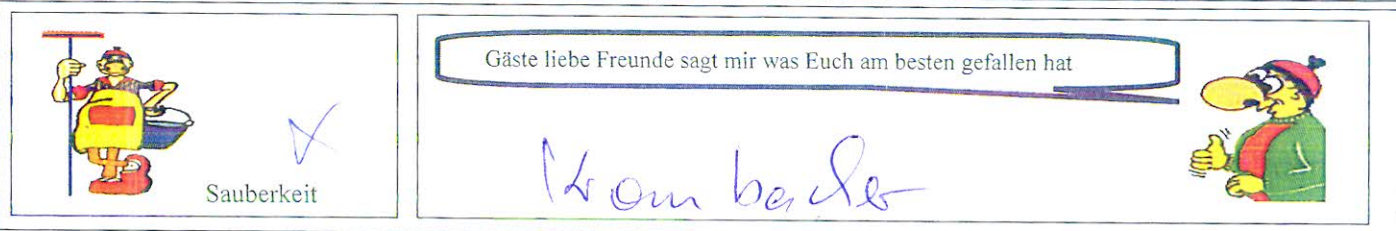 Sauberkeit
Gäste liebe Freunde sagt mir was Euch am besten gefallen hat
Krombacher